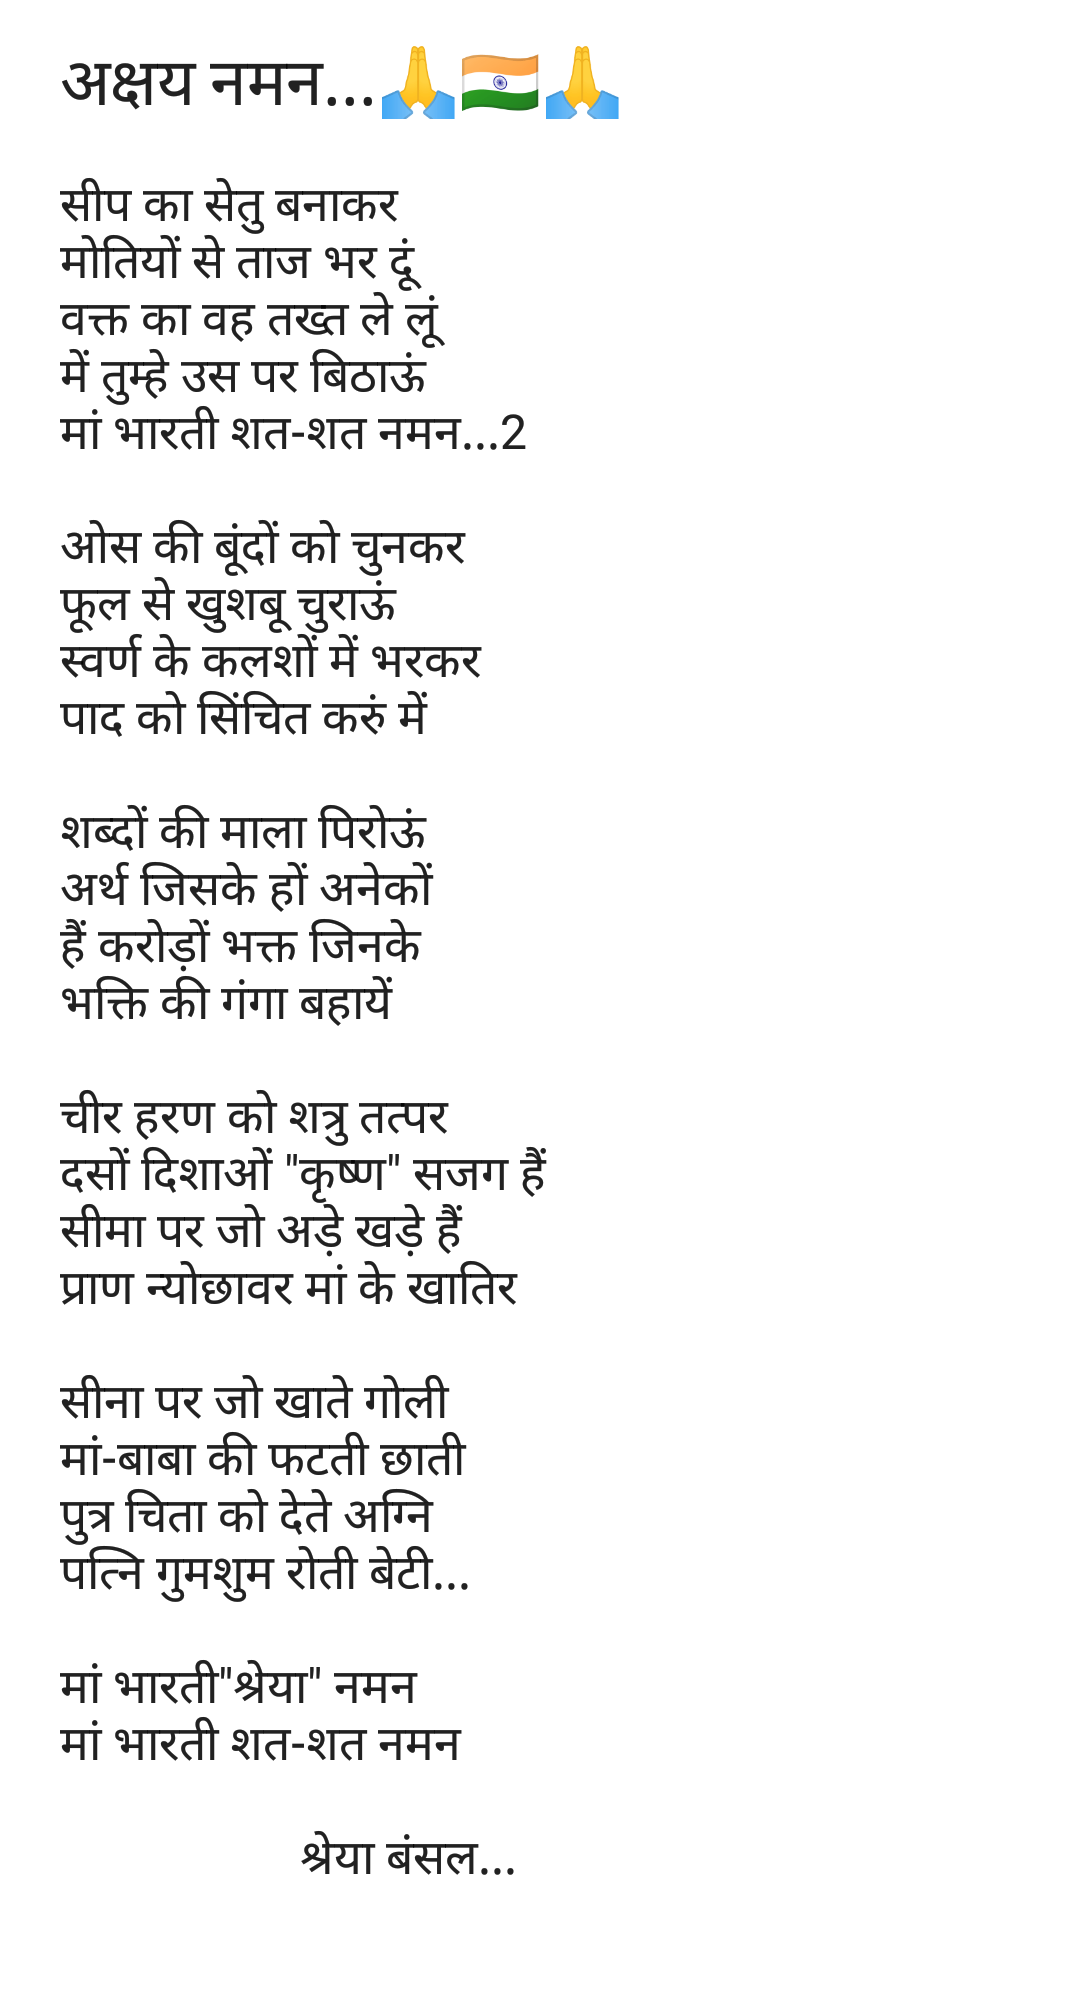 अक्षय नमन...🙏🇮🇳🙏
सीप का सेतु बनाकर
मोतियों से ताज भर दूं
वक्त का वह तख्त ले लूं
में तुम्हे उस पर बिठाऊं
मां भारती शत-शत नमन...2
ओस की बूंदों को चुनकर
फूल से खुशबू चुराऊं
स्वर्ण के कलशों में भरकर
पाद को सिंचित करुं में
शब्दों की माला पिरोऊं
अर्थ जिसके हों अनेकों
हैं करोड़ों भक्त जिनके
भक्ति की गंगा बहायें
चीर हरण को शत्रु तत्पर
दसों दिशाओं "कृष्ण" सजग हैं
सीमा पर जो अड़े खड़े हैं
प्राण न्योछावर मां के खातिर
सीना पर जो खाते गोली
मां-बाबा की फटती छाती
पुत्र चिता को देते अग्नि
पत्नि गुमशुम रोती बेटी...
मां भारती"श्रेया" नमन
मां भारती शत-शत नमन
श्रेया बंसल...